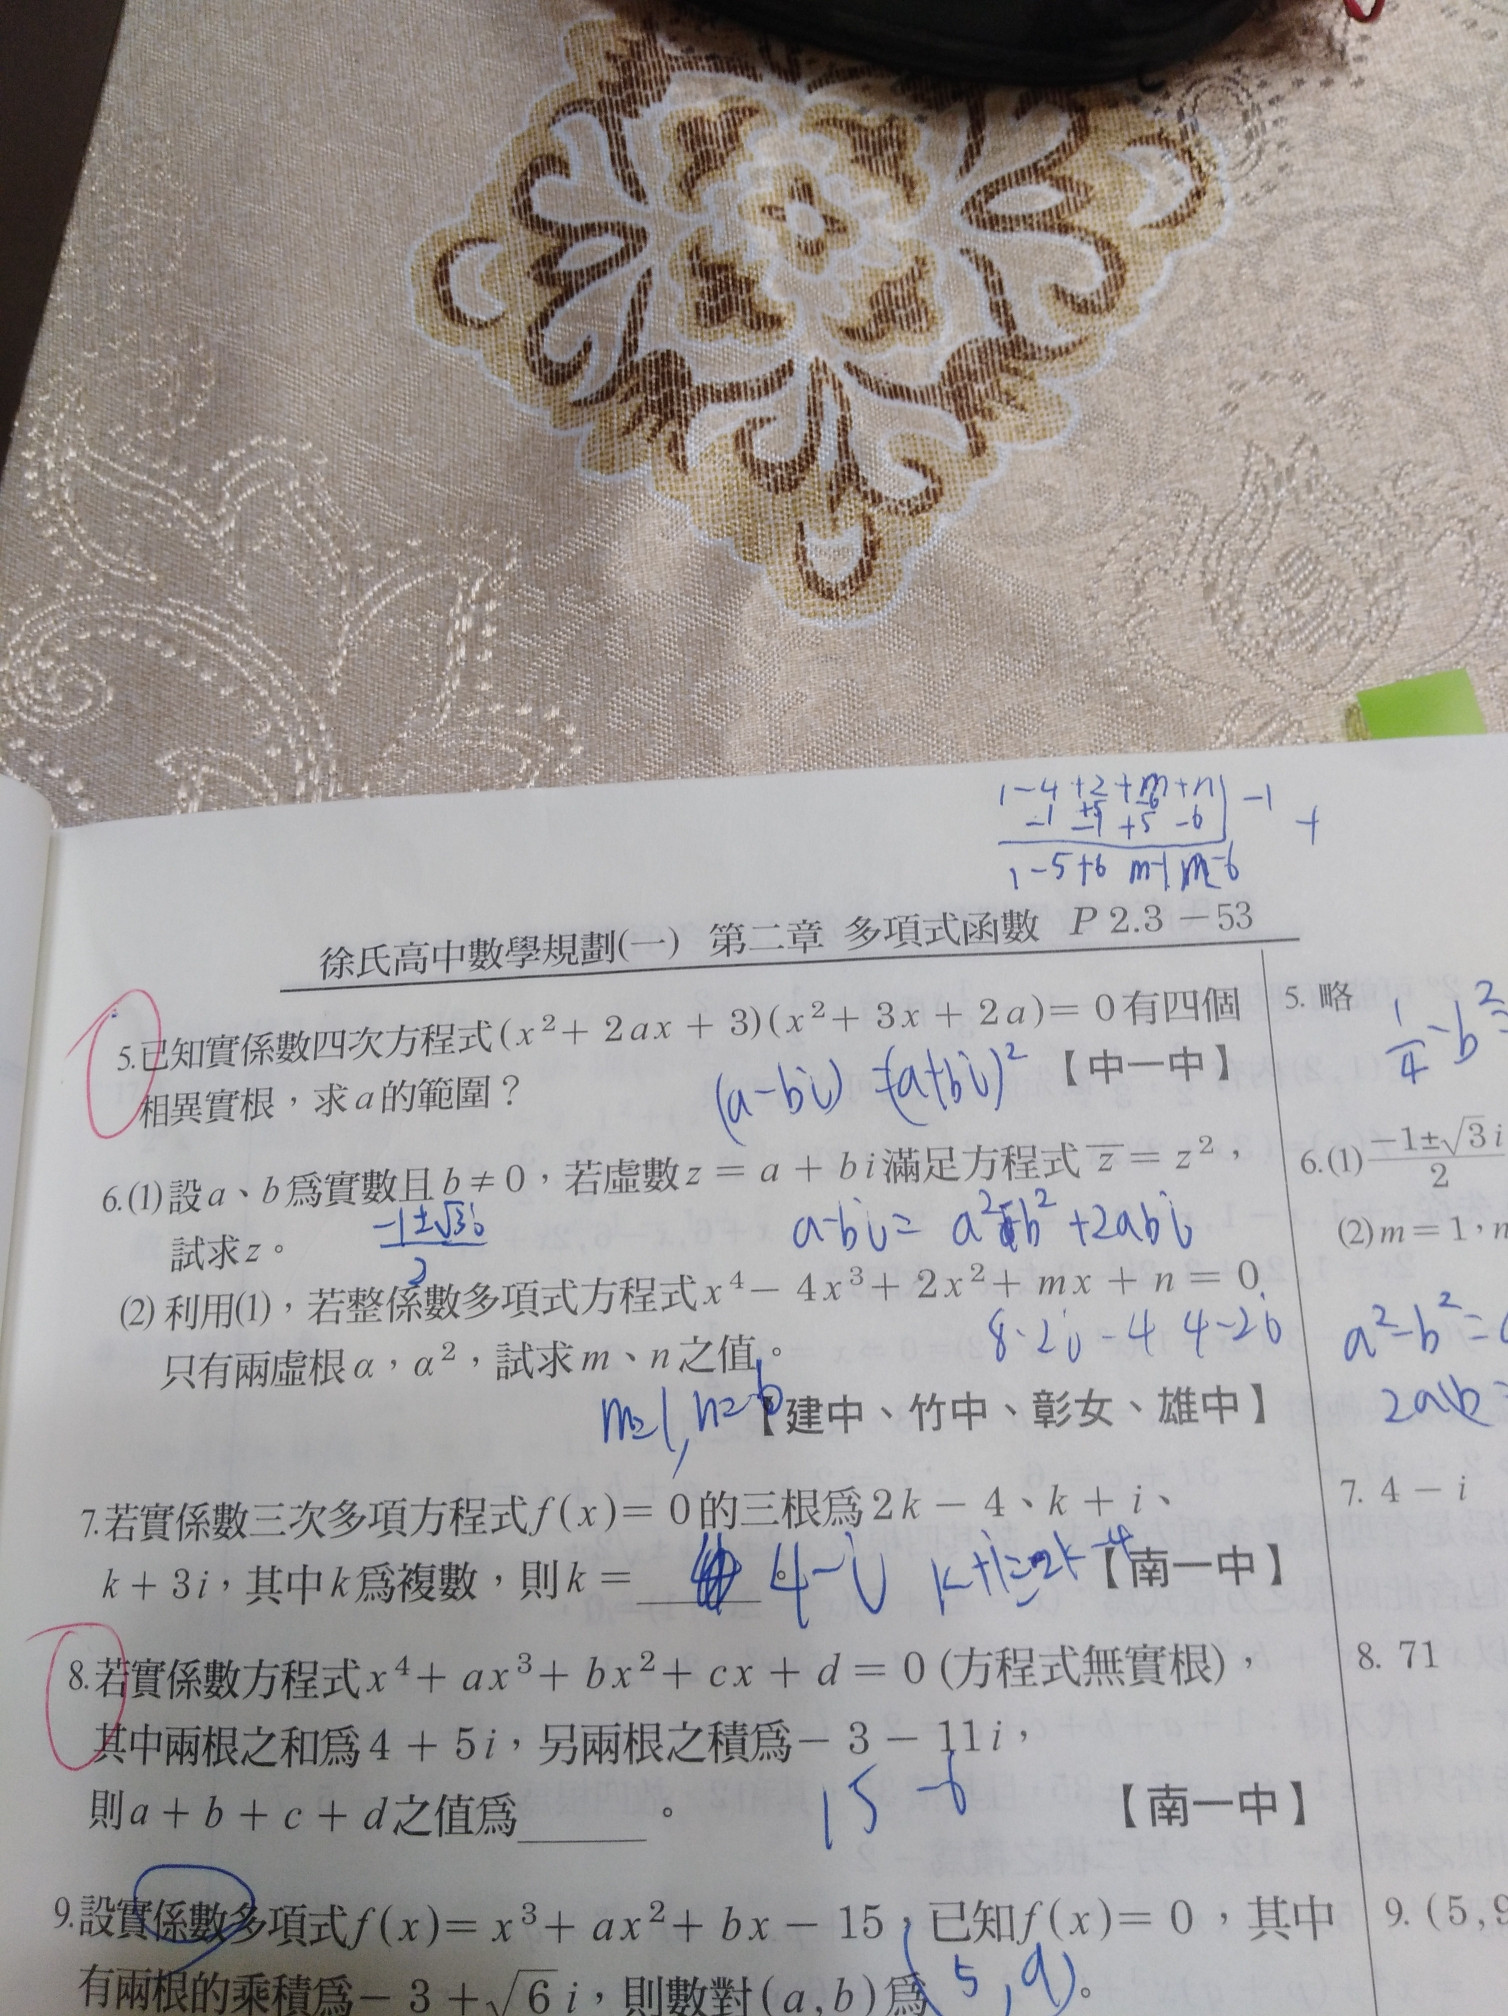 1-4+2+m+n| -1
+5 -6
-1 -1 +5 -6 +
1-5+6 m-1 m-6
徐氏高中數學規劃(一) 第二章 多項式函數 P 2.3－53
5.已知實係數四次方程式(x²+2ax+3)(x²+3x+2a)=0有四個
相異實根，求a的範圍？ 【中一中】
5. 略
1/4-b²=
(a-bi)=(a+bi)²
6.(1)設a、b爲實數且b≠0，若虛數z=a+bi滿足方程式z̅=z²，
試求z。
-1±√3i/2
a-bi=a²-b²+2abi
6.(1) -1±√3i/2
(2)利用(1)，若整係數多項式方程式x⁴-4x³+2x²+mx+n=0
只有兩虛根α，α²，試求m、n之值。
8-2i-4 4-2i
m=1, n=-6
【建中、竹中、彰女、雄中】
(2)m=1，n
a²-b²=
2ab=
7.若實係數三次多項方程式f(x)=0的三根爲2k-4、k+i、
k+3i，其中k爲複數，則k=＿＿。 【南一中】
4-i k+i=2k-4
7. 4-i
8.若實係數方程式x⁴+ax³+bx²+cx+d=0(方程式無實根)，
其中兩根之和爲4+5i，另兩根之積爲-3-11i，
則a+b+c+d之值爲＿＿。 【南一中】
15 -6
8. 71
9.設實係數多項式f(x)=x³+ax²+bx-15，已知f(x)=0，其中
有兩根的乘積爲-3+√6i，則數對(a,b)爲(5,9)。
9. (5,9